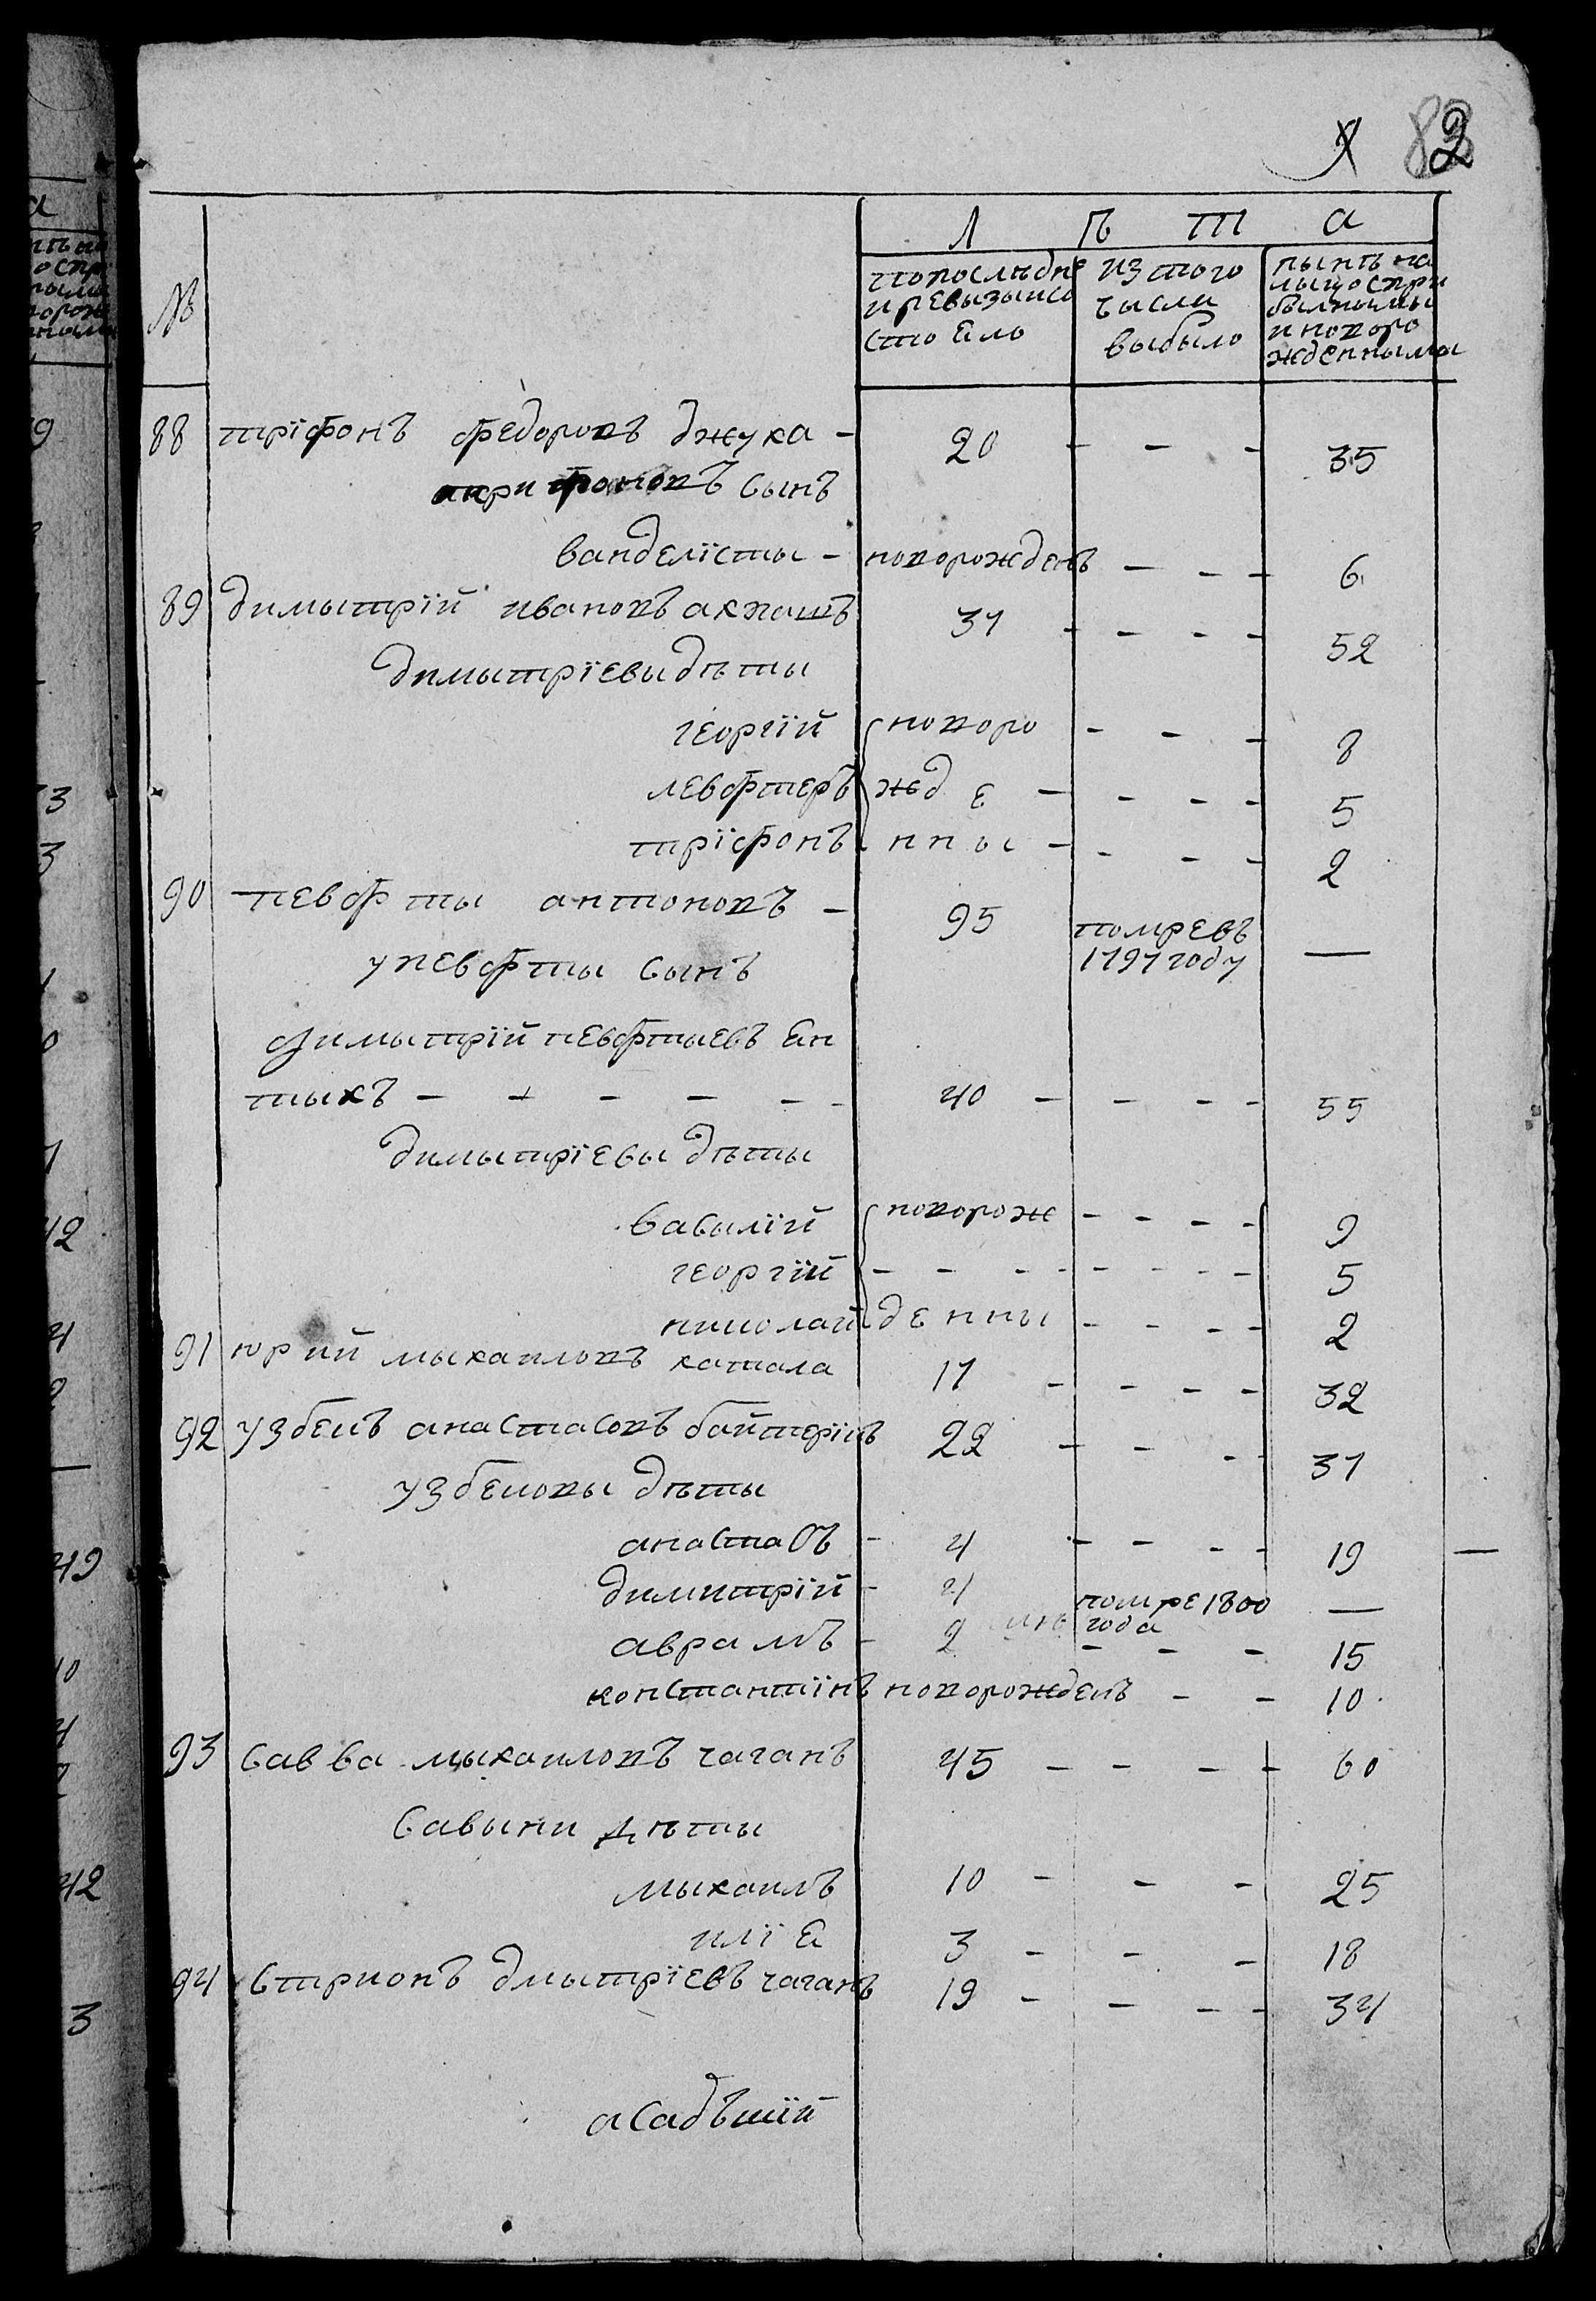 82
Л ѣ т а
№
попоследне
и ревызыисо
стоялo
из того
чысла
выбыло
нынѣ на
лыцо спри
былнымы
и новоро
жденнымы
88 тріфонъ федоровъ джука - 20 - - - 35
трифоновъ сынъ
ванделісты - новорожденъ - - - 6
89 димытрій ивановъ акпашъ 31 - - - - 52
димытріевы дѣты
георгій новоро - - - 8
левфтеръ жд е - - - - 5
тріфонъ нны - - - - 2
90 певфты антоновъ - 95 помревъ —
1797 году
у певфты сынъ
димытрій певфтыевъ ян
тыхъ - - - - - - 40 - - - - 55
димытріевы дѣты
василій новорож - - - - 9
георгій - - - - - - - - 5
николай денны - - - - 2
91 юрий мыхаиловъ катала 17 - - - - 32
92 узбекъ анастасовъ байтерікъ 22 - - - 37
узбековы дѣты
анастасъ - 4 - - - - 19 —
димитрій - 4 помре 1800 —
года
аврамъ - 2 - - - 15
константінъ новорожденъ - - 10
93 савва мыхаиловъ чаганъ 45 - - - - 60
савыни дѣты
мыхаилъ 10 - - - 25
илія 3 - - - 18
94 стрионъ дмытріевъ чаганъ 19 - - - - 34
асадъшій